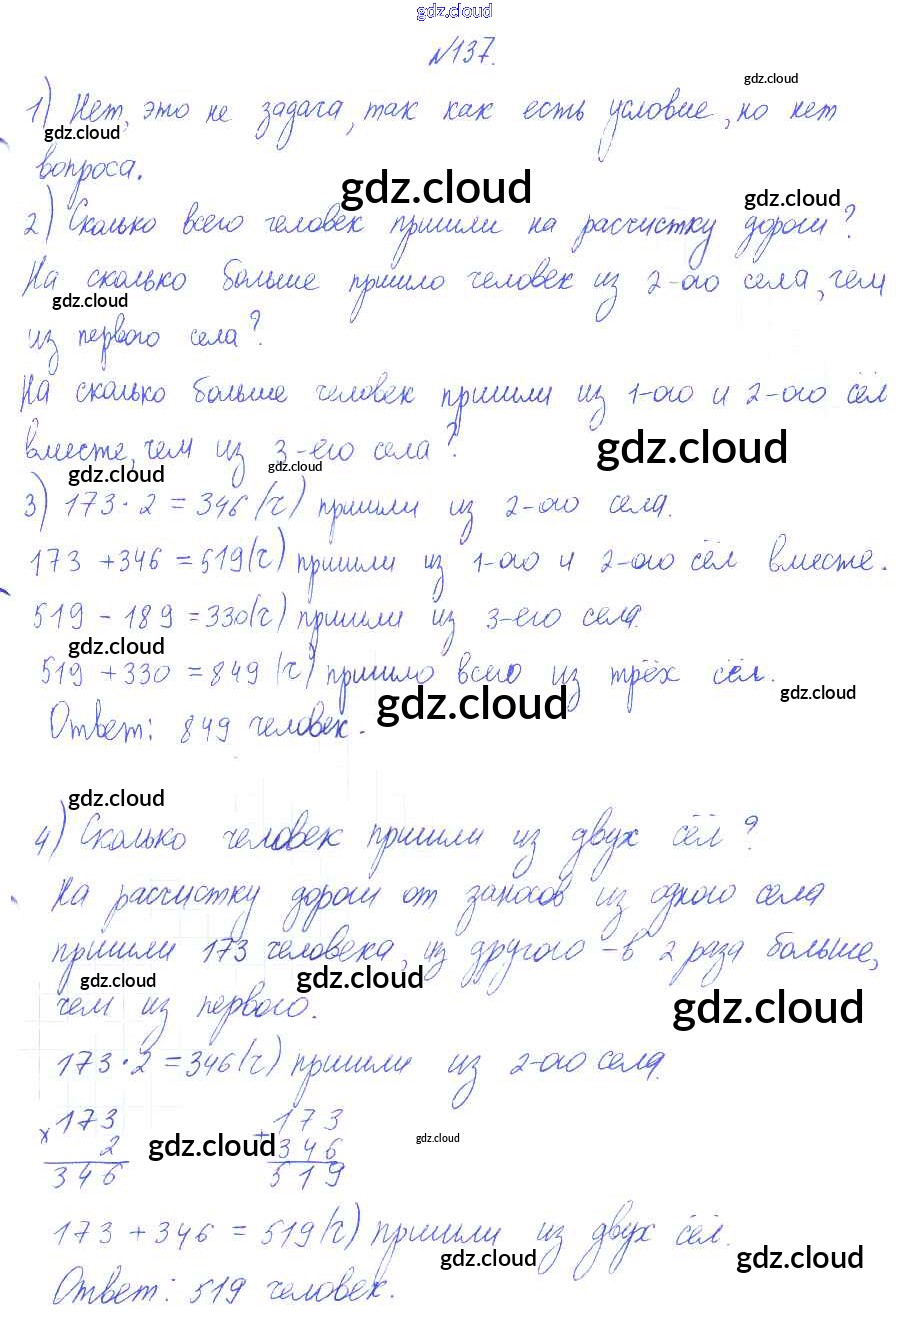 gdz.cloud
№137.
gdz.cloud
1) Нет, это не задача, так как есть условие, но нет
gdz.cloud gdz.cloud
вопроса.
gdz.cloud gdz.cloud
2) Сколько всего человек пришли на расчистку дороги?
На сколько больше пришло человек из 2-ого села, чем
gdz.cloud
из первого села?
На сколько больше человек пришли из 1-ого и 2-ого сёл
вместе, чем из 3-его села?
gdz.cloud
gdz.cloud gdz.cloud
3) 173 · 2 = 346 (ч) пришли из 2-ого села.
173 + 346 = 519 (ч) пришли из 1-ого и 2-ого сёл вместе.
519 - 189 = 330 (ч) пришли из 3-его села.
gdz.cloud
519 + 330 = 849 (ч) пришло всего из трёх сёл.
gdz.cloud gdz.cloud
Ответ: 849 человек.
gdz.cloud
4) Сколько человек пришли из двух сёл?
На расчистку дороги от заносов из одного села
пришли 173 человека, из другого - в 2 раза больше,
gdz.cloud gdz.cloud gdz.cloud
чем из первого.
173 · 2 = 346 (ч) пришли из 2-ого села.
× 173 + 173
2 346
gdz.cloud gdz.cloud
346 519
173 + 346 = 519 (ч) пришли из двух сёл.
gdz.cloud gdz.cloud
Ответ: 519 человек.